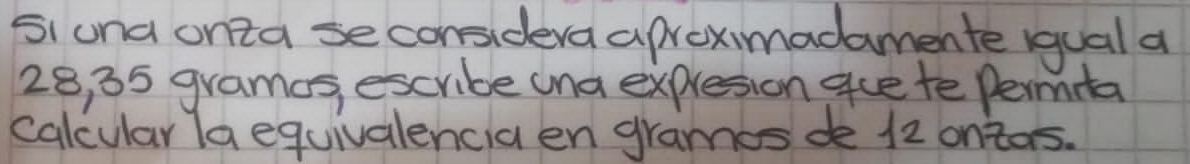 Si una onza se considera aproximadamente igual a
28,35 gramos, escribe una expresion que te permita
calcular la equivalencia en gramos de 12 onzas.